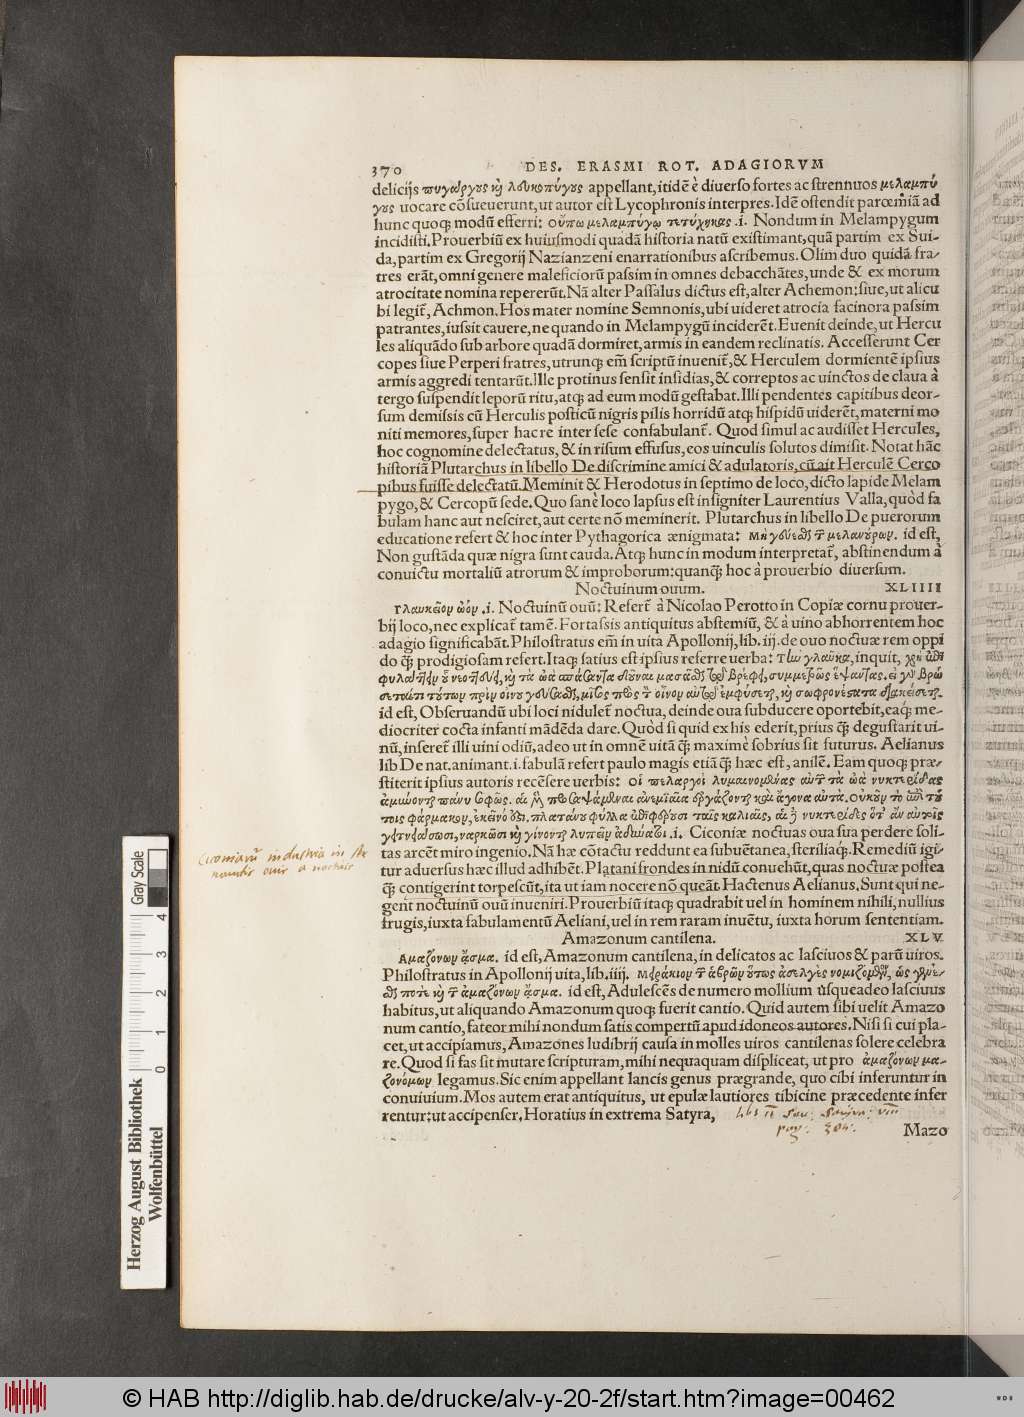 370 DES. ERASMI ROT. ADAGIORVM
delicijs πυγάργους καὶ λευκοπύγους appellant, itidē è diuerso fortes ac strennuos μελαμπύ
γους uocare cōsueuerunt, ut autor est Lycophronis interpres. Idē ostendit parœmiā ad
hunc quoq; modū efferri: Οὔπω μελαμπύγῳ τετύχηκας .i. Nondum in Melampygum
incidisti. Prouerbiū ex huiusmodi quadā historia natū existimant, quā partim ex Sui-
da, partim ex Gregorij Nazianzeni enarrationibus ascribemus. Olim duo quidā fra-
tres erāt, omni genere maleficiorū passim in omnes debacchātes, unde & ex morum
atrocitate nomina repererūt. Nā alter Passalus dictus est, alter Achemon: siue, ut alicu
bi legit̄, Achmon. Hos mater nomine Semnonis, ubi uideret atrocia facinora passim
patrantes, iussit cauere, ne quando in Melampygū inciderēt. Euenit deinde, ut Hercu
les aliquādo sub arbore quadā dormiret, armis in eandem reclinatis. Accesserunt Cer
copes siue Perperi fratres, utrunq; em̄ scriptū inuenit̄, & Herculem dormientē ipsius
armis aggredi tentarūt. Ille protinus sensit insidias, & correptos ac uinctos de claua à
tergo suspendit leporū ritu, atq; ad eum modū gestabat. Illi pendentes capitibus deor-
sum demissis cū Herculis posticū nigris pilis horridū atq; hispidū uiderēt, materni mo
niti memores, super hac re inter sese confabulant̄. Quod simul ac audisset Hercules,
hoc cognomine delectatus, & in risum effusus, eos uinculis solutos dimisit. Notat hāc
historiā Plutarchus in libello De discrimine amici & adulatoris, cū ait Herculē Cerco
pibus fuisse delectatū. Meminit & Herodotus in septimo de loco, dicto lapide Melam
pygo, & Cercopū sede. Quo sanè loco lapsus est insigniter Laurentius Valla, quòd fa
bulam hanc aut nesciret, aut certe nō meminerit. Plutarchus in libello De puerorum
educatione refert & hoc inter Pythagorica ænigmata: Μὴ γεύεσθαι τ̃ μελανούρων. id est,
Non gustāda quæ nigra sunt cauda. Atq; hunc in modum interpretat̄, abstinendum à
conuictu mortaliū atrorum & improborum: quanq̃ hoc à prouerbio diuersum.
Noctuinum ouum. XLIIII
Γλαυκεῖον ὠόν .i. Noctuinū ouū: Refert̄ à Nicolao Perotto in Copiæ cornu prouer-
bij loco, nec explicat̄ tamē. Fortassis antiquitus abstemiū, & à uino abhorrentem hoc
adagio significabāt. Philostratus em̄ in uita Apollonij, lib. iij. de ouo noctuæ rem oppi
do q̃ prodigiosam refert. Itaq; satius est ipsius referre uerba: Τὼ γλαῦκα, inquit,
id est, Obseruandū ubi loci nidulet̄ noctua, deinde oua subducere oportebit, eaq; me-
diocriter cocta infanti mādēda dare. Quòd si quid ex his ederit, prius q̃ degustarit ui-
nū, inseret̄ illi uini odiū, adeo ut in omnē uitā q̃ maximè sobrius sit futurus. Aelianus
lib De nat. animant. i. fabulā refert paulo magis etiā q̃ hæc est, anilē. Eam quoq; præ-
stiterit ipsius autoris recēsere uerbis: Οἱ πελαργοὶ λυμαινομένας αὐτ τὰ ὠὰ νυκτερίδας
.i. Ciconiæ noctuas oua sua perdere soli-
tas arcēt miro ingenio. Nā hæ cōtactu reddunt ea subuētanea, steriliaq;. Remediū igi-
tur aduersus hæc illud adhibēt. Platani frondes in nidū conuehūt, quas noctuæ postea
q̃ contigerint torpescūt, ita ut iam nocere nō queāt. Hactenus Aelianus. Sunt qui ne-
gent noctuinū ouū inueniri. Prouerbiū itaq; quadrabit uel in hominem nihili, nullius
frugis, iuxta fabulamentū Aeliani, uel in rem raram inuētu, iuxta horum sententiam.
Amazonum cantilena. XLV
Αμαζόνων ᾆσμα. id est, Amazonum cantilena, in delicatos ac lasciuos & parū uiros.
Philostratus in Apollonij uita, lib. iiij.
id est, Adulescēs de numero mollium usqueadeo lasciuus
habitus, ut aliquando Amazonum quoq; fuerit cantio. Quid autem sibi uelit Amazo
num cantio, fateor mihi nondum satis compertū apud idoneos autores. Nisi si cui pla-
cet, ut accipiamus, Amazones ludibrij causa in molles uiros cantilenas solere celebra
re. Quod si fas sit mutare scripturam, mihi nequaquam displiceat, ut pro ἀμαζόνων μα-
ζονόμων legamus. Sic enim appellant lancis genus prægrande, quo cibi inferuntur in
conuiuium. Mos autem erat antiquitus, ut epulæ lautiores tibicine præcedente infer
rentur: ut accipenser. Horatius in extrema Satyra,
Mazo
Ciconiarū industria in
Gray Scale
4
3
2
1
0
Herzog August Bibliothek
Wolfenbüttel
© HAB http://diglib.hab.de/drucke/alv-y-20-2f/start.htm?image=00462